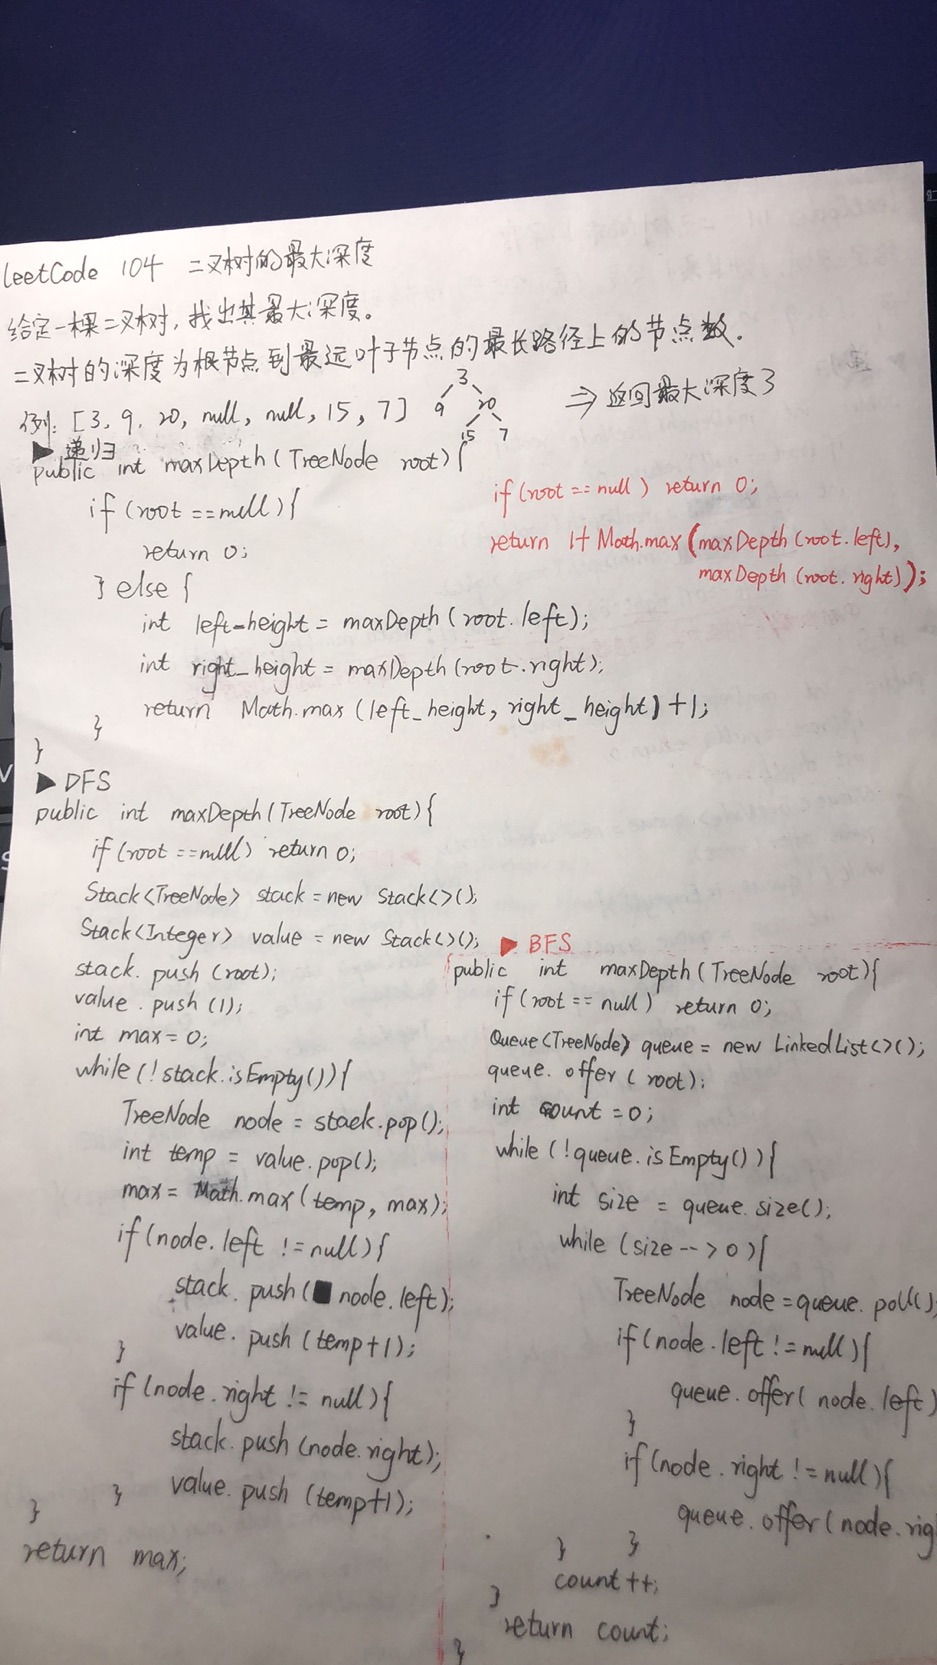 leetCode 104 二叉树的最大深度
给定一棵二叉树，找出其最大深度。
二叉树的深度为根节点到最远叶子节点的最长路径上的节点数.
例: [3, 9, 20, null, null, 15, 7]
3
9 20
15 7
⇒ 返回最大深度3
▶ 递归
public int maxDepth(TreeNode root){
if (root ==null){
return 0;
} else {
int left_height = maxDepth (root.left);
int right_height = maxDepth(root.right);
return Math.max (left_height, right_height)+1;
}
}
if (root == null) return 0;
return 1+ Math.max (maxDepth (root.left),
maxDepth (root.right));
▶ DFS
public int maxDepth(TreeNode root){
if (root ==null) return 0;
Stack<TreeNode> stack = new Stack<>();
Stack<Integer> value = new Stack<>();
stack. push (root);
value. push (1);
int max = 0;
while (! stack.isEmpty()){
TreeNode node = stack.pop();
int temp = value.pop();
max = Math.max (temp, max);
if (node.left != null){
stack. push ( node.left);
value. push (temp+1);
}
if (node.right != null){
stack. push (node.right);
value. push (temp+1);
}
}
return max;
▶ BFS
public int maxDepth (TreeNode root){
if (root == null) return 0;
Queue<TreeNode> queue = new LinkedList<>();
queue. offer (root);
int count = 0;
while (!queue.isEmpty()){
int size = queue.size();
while (size-- > 0){
TreeNode node = queue.poll();
if (node.left != null){
queue.offer( node.left)
}
if (node.right != null){
queue.offer (node.rig
}
}
count ++;
}
return count;
}